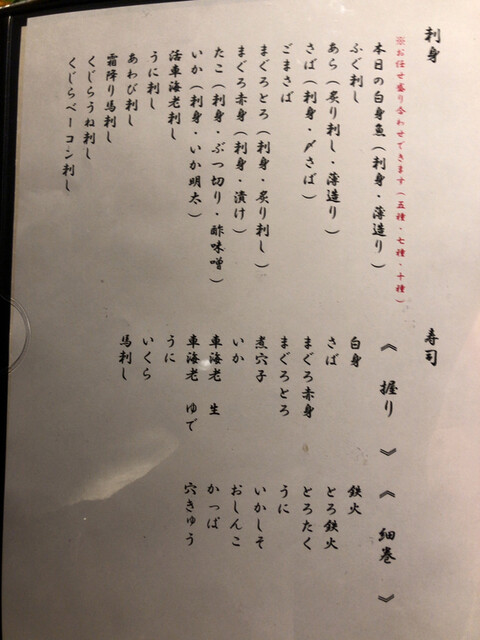 刺身
※お任せ盛り合わせできます(五種・七種・十種)
本日の白身魚(刺身・薄造り)
ふぐ刺し
あら(炙り刺し・薄造り)
さば(刺身・〆さば)
ごまさば
まぐろとろ(刺身・炙り刺し)
まぐろ赤身(刺身・漬け)
たこ(刺身・ぶつ切り・酢味噌)
いか(刺身・いか明太)
活車海老刺し
うに刺し
あわび刺し
霜降り馬刺し
くじらうね刺し
くじらベーコン刺し
寿司
《 握り 》
白身
さば
まぐろ赤身
まぐろとろ
煮穴子
いか
車海老 生
車海老 ゆで
うに
いくら
馬刺し
《 細巻 》
鉄火
とろ鉄火
とろたく
うに
いかしそ
おしんこ
かっぱ
穴きゅう